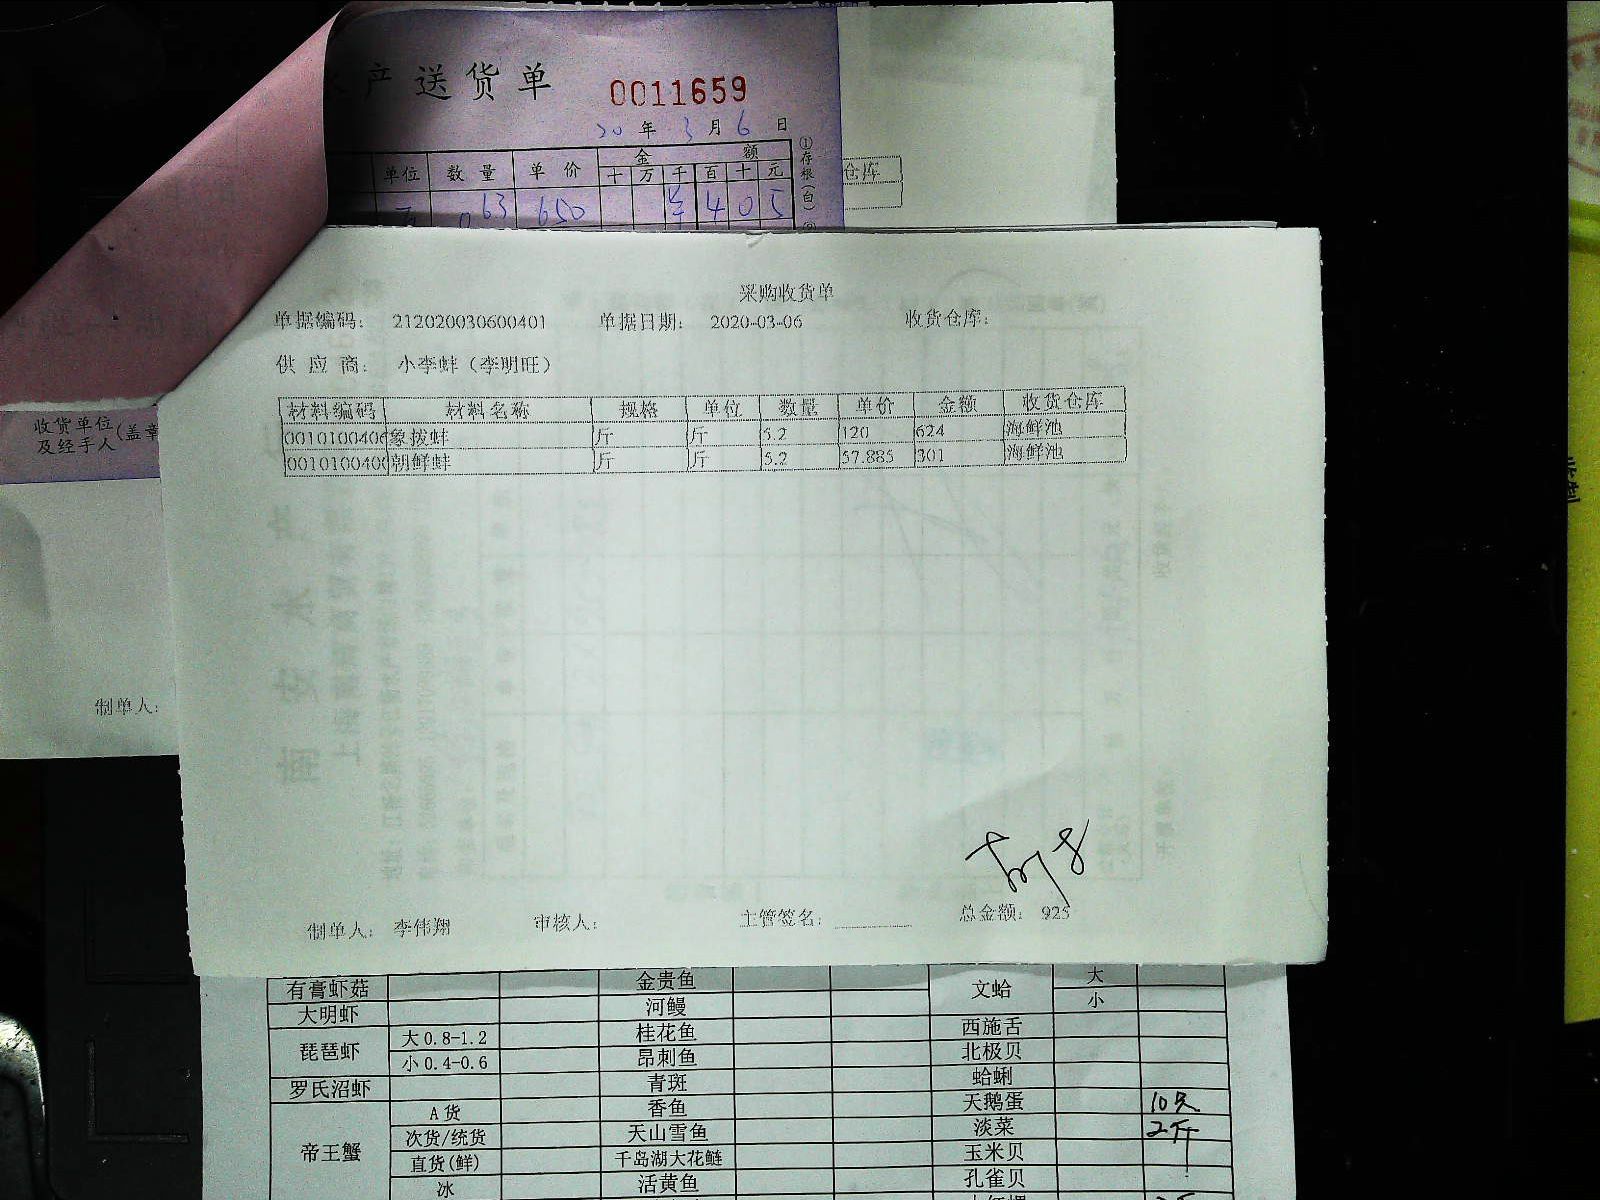 产送货单 0011659
20年3月6日
单位 数量 单价 金额
十 万 千 百 十 元
63 650 4 0 5
①存根(白)
仓库
采购收货单
单据编码: 212020030600401 单据日期: 2020-03-06 收货仓库:
供应商: 小李蚌(李明旺)
材料编码 材料名称 规格 单位 数量 单价 金额 收货仓库
0010100406 象拨蚌 斤 斤 5.2 120 624 海鲜池
001010040 朝鲜蚌 斤 斤 5.2 57.885 301 海鲜池
收货单位
及经手人 (盖章
制单人:
制单人: 李伟翔 审核人: 主管签名: 总金额: 925
有膏虾菇 金贵鱼 文蛤 大
大明虾 河鳗 小
琵琶虾 大0.8-1.2 桂花鱼 西施舌
小0.4-0.6 昂刺鱼 北极贝
罗氏沼虾 青斑 蛤蜊
帝王蟹 A货 香鱼 天鹅蛋 10只
次货/统货 天山雪鱼 淡菜 2斤
直货(鲜) 千岛湖大花鲢 玉米贝
冰 活黄鱼 孔雀贝